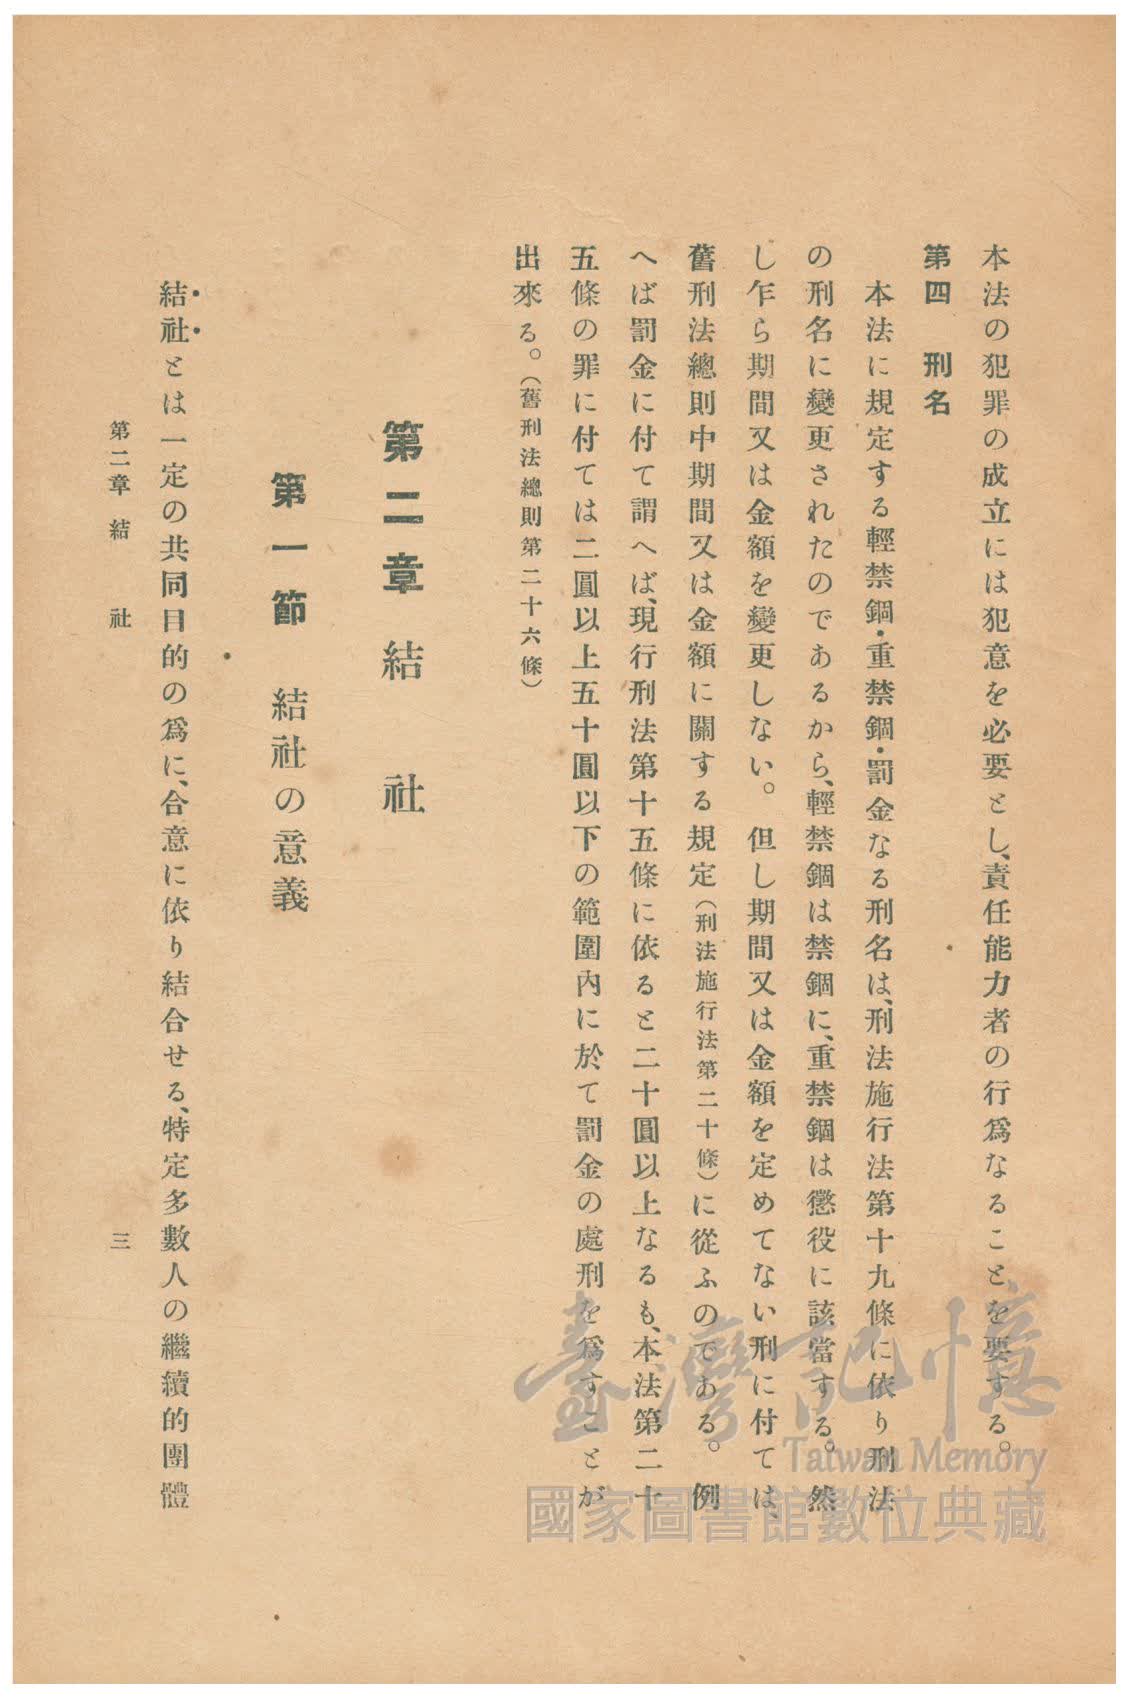 本法の犯罪の成立には犯意を必要とし、責任能力者の行爲なることを要する。
第四　刑名
本法に規定する輕禁錮・重禁錮・罰金なる刑名は、刑法施行法第十九條に依り刑法
の刑名に變更されたのであるから、輕禁錮は禁錮に、重禁錮は懲役に該當する。然
し乍ら期間又は金額を變更しない。但し期間又は金額を定めてない刑に付ては、
舊刑法總則中期間又は金額に關する規定（刑法施行法第二十條）に從ふのである。例
へば罰金に付て謂へば、現行刑法第十五條に依ると二十圓以上なるも、本法第二十
五條の罪に付ては二圓以上五十圓以下の範圍內に於て罰金の處刑を爲すことが
出來る。（舊刑法總則第二十六條）
第二章　結　社
第一節　結社の意義
結社とは一定の共同目的の爲に、合意に依り結合せる、特定多數人の繼續的團體
第二章　結　社
三
臺灣記憶
Taiwan Memory
國家圖書館數位典藏